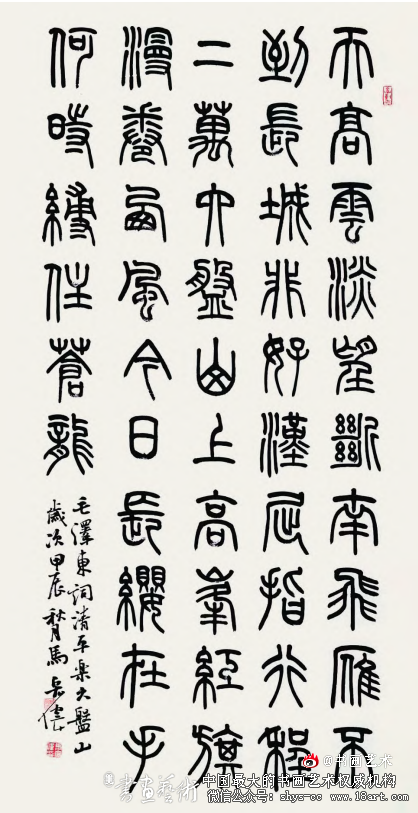 天高雲淡望斷南飛雁不
到長城非好漢屈指行程
二萬六盤山上高峯紅旗
漫卷西風今日長纓在手
何時縛住蒼龍
毛澤東詞清平樂六盤山
歲次甲辰秋月馬岳
@书画艺术
書畫藝術
中国最大的书画艺术权威机构
微信公众号：shys-cc www.1841.art